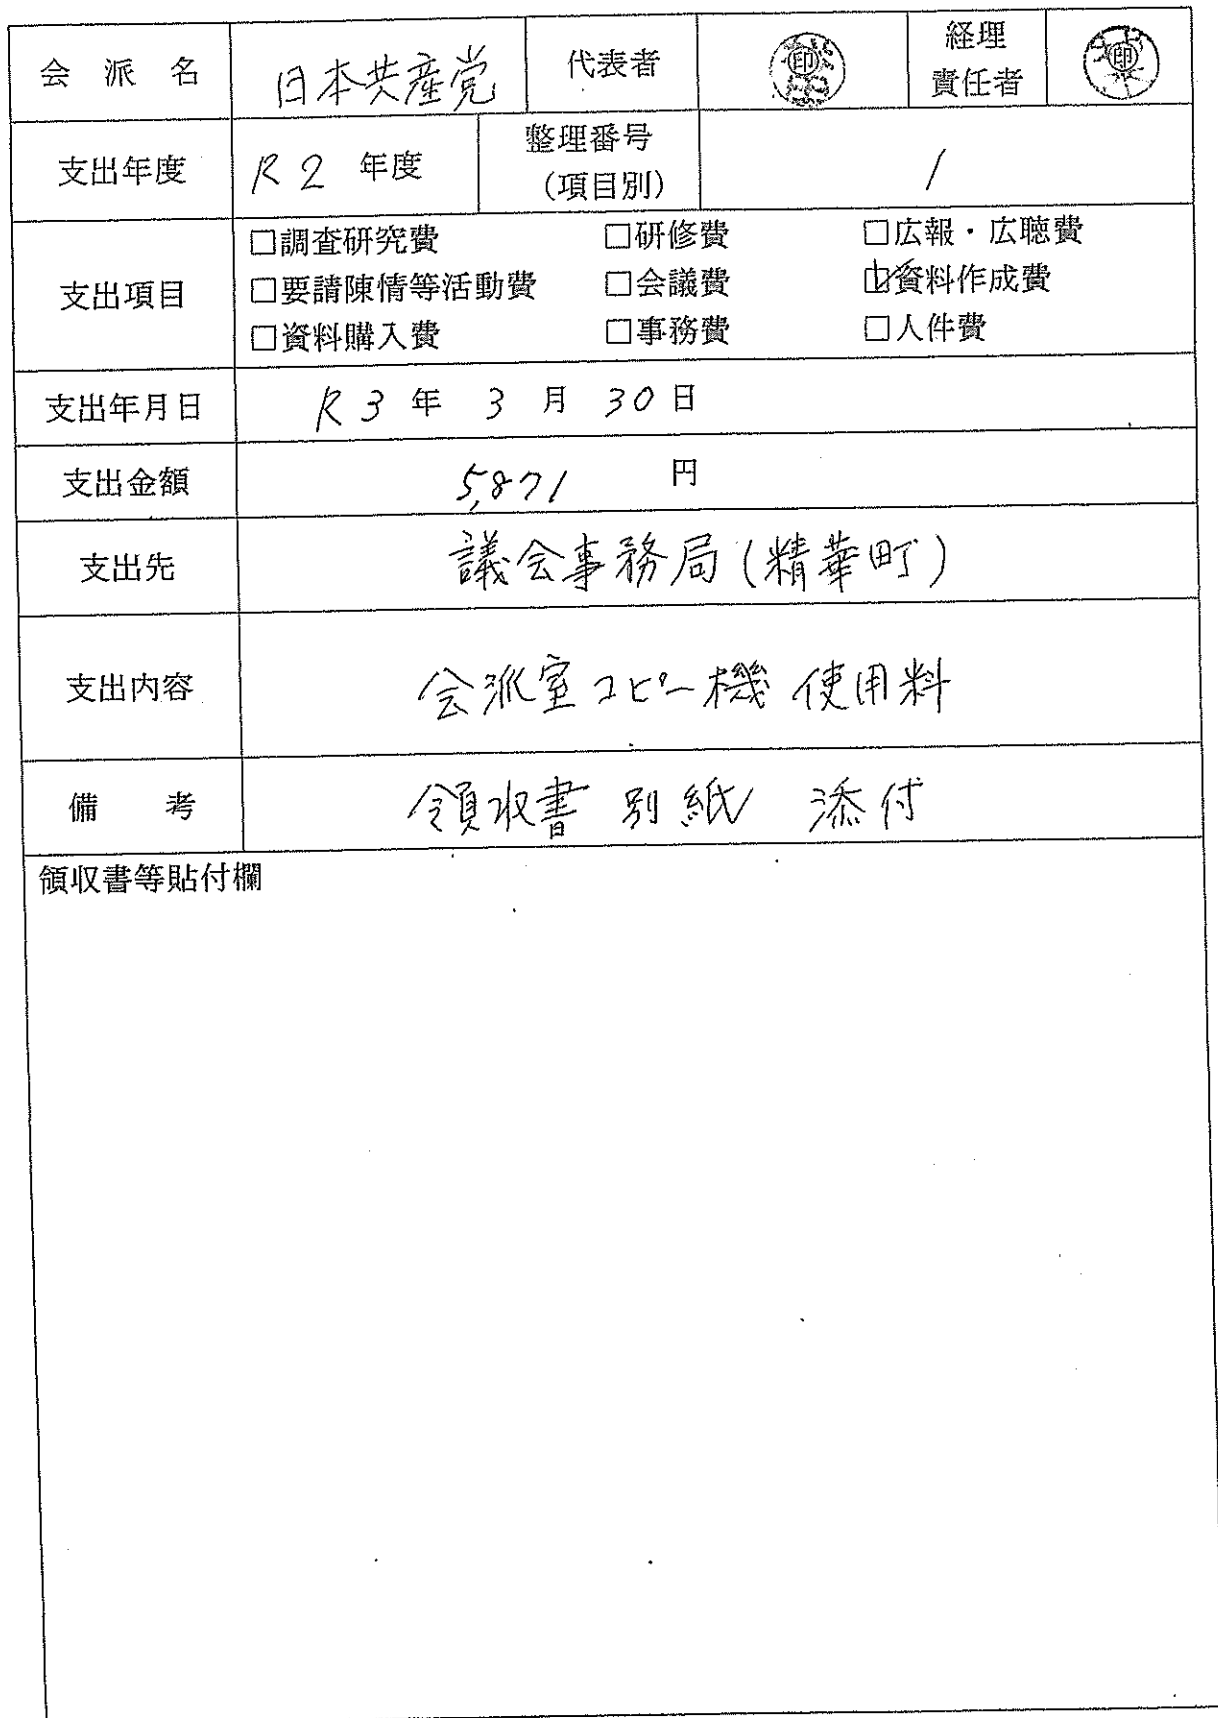 会派名 日本共産党 代表者 印 経理責任者 印
支出年度 R2年度 整理番号(項目別) 1
支出項目
□調査研究費 □研修費 □広報・広聴費
□要請陳情等活動費 □会議費 ☑資料作成費
□資料購入費 □事務費 □人件費
支出年月日 R3年3月30日
支出金額 5,871円
支出先 議会事務局(精華町)
支出内容 会派室コピー機 使用料
備考 領収書 別紙 添付
領収書等貼付欄